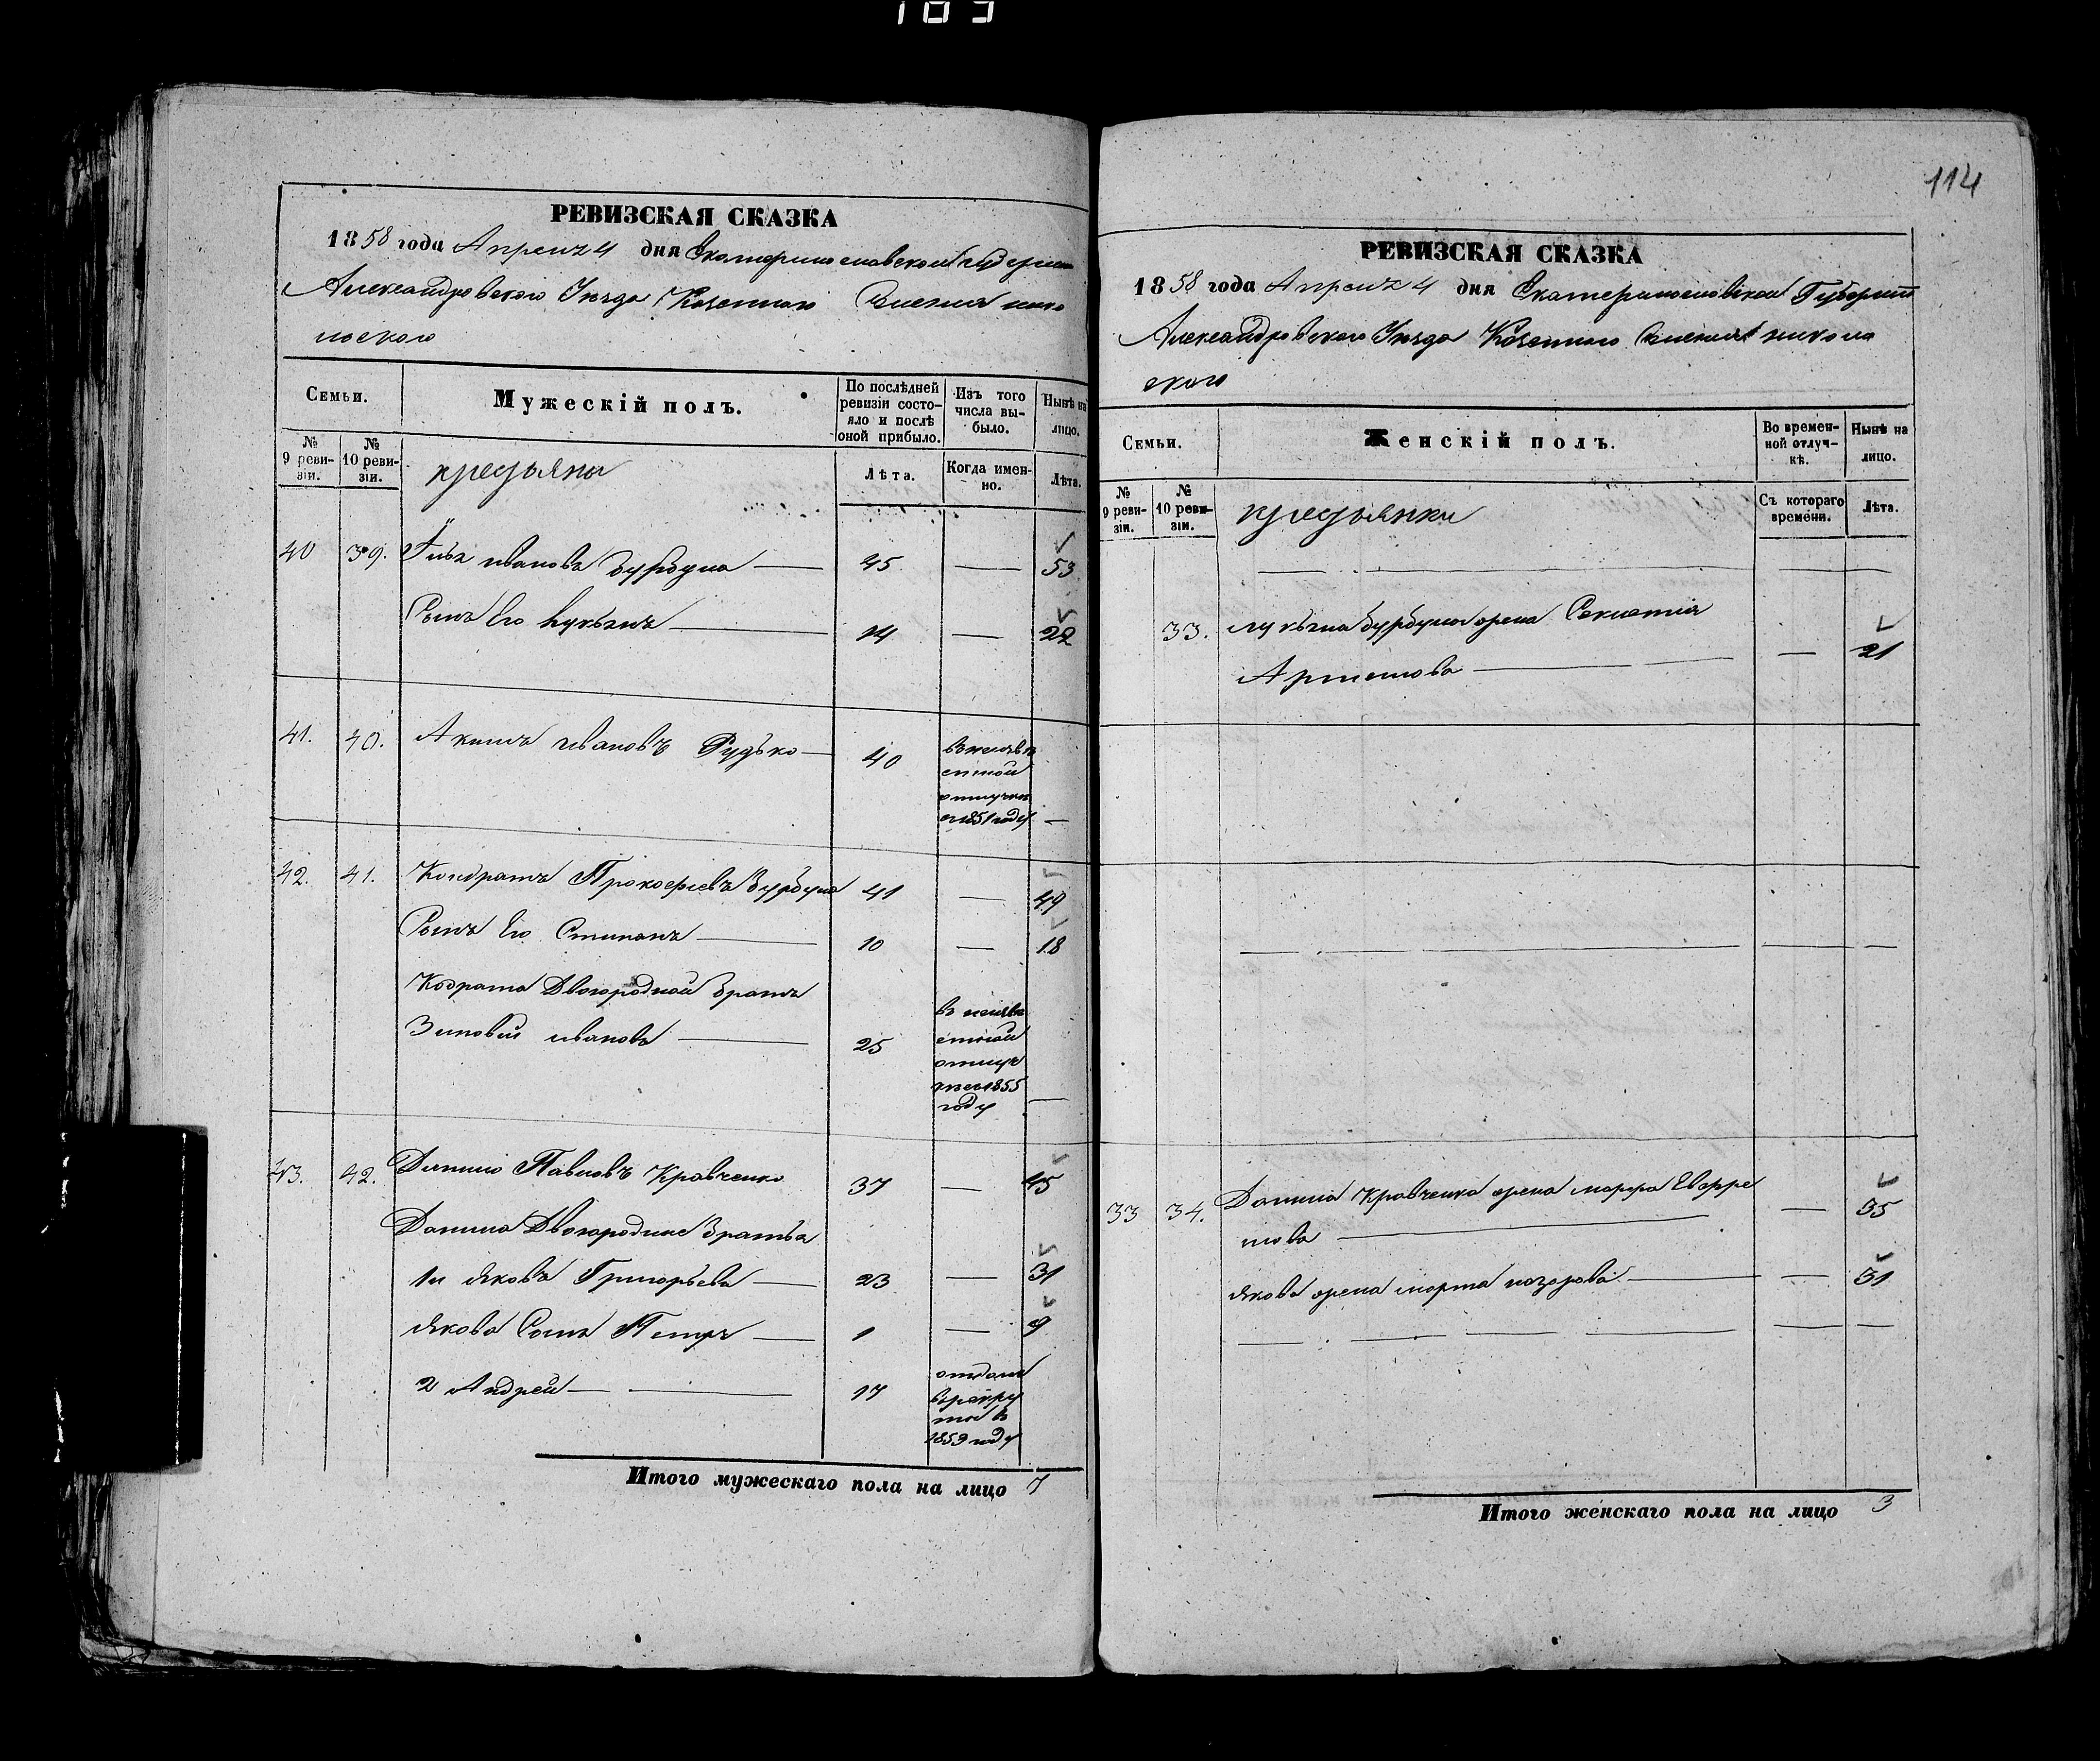 109
РЕВИЗСКАЯ СКАЗКА
1858 года Апреля 4 дня Екатеринославской губернии
Александровскаго Уезда Казеннаго имения нико
льского
Семьи.
Мужескій полъ.
По послѣдней ревизіи состо-
яло и послѣ оной прибыло.
Изъ того числа вы-
было.
Нынѣ на лицо.
№ 9 реви-
зіи.
№ 10 реви-
зіи.
кресьяны
Лѣта.
Когда имен-
но.
Лѣта.
40 39. иванова бурбула — 45 — 53
Сынъ Его Лукьянъ — 14 — 22
41. 40. Акимъ ивановъ Рудько — 40
в неизве
стной
отлучке
с 1851 году —
42. 41. Кондратъ Прокофiевъ бурбула 41 — 49
Сынъ Его Стипанъ — 10 — 18
Кодрата Двоюродной братъ
Зиновей иванова — 25
в неизве
стной
отлуч
ке с 1855
году —
43. 42. Данило Павловъ Кравченко 37 — 45
Данила Двоюродные братья
1й яковъ Григорьева — 23 — 31
якова Сынъ Петръ — 1 — 9
2 Андрей — — 17
отдан
в рекру
ты в
1853 году
Итого мужескаго пола на лицо 7
114
РЕВИЗСКАЯ СКАЗКА
1858 года Апреля 4 дня Екатеринославской Губернии
Александровскаго Уезда Казеннаго имения николь
ского
Семьи.
Женскій полъ.
Во времен-
ной отлуч-
кѣ.
Нынѣ на лицо.
№ 9 реви-
зіи.
№ 10 реви-
зіи.
кресьянки
Съ котораго времени.
Лѣта.
33. лукьяна бурбулы жена
Артемова — — 21
33 34. Данила Кравченка жена марфа Евфре
мова — — 35
якова жена марта назарова — — 31
Итого женскаго пола на лицо 3